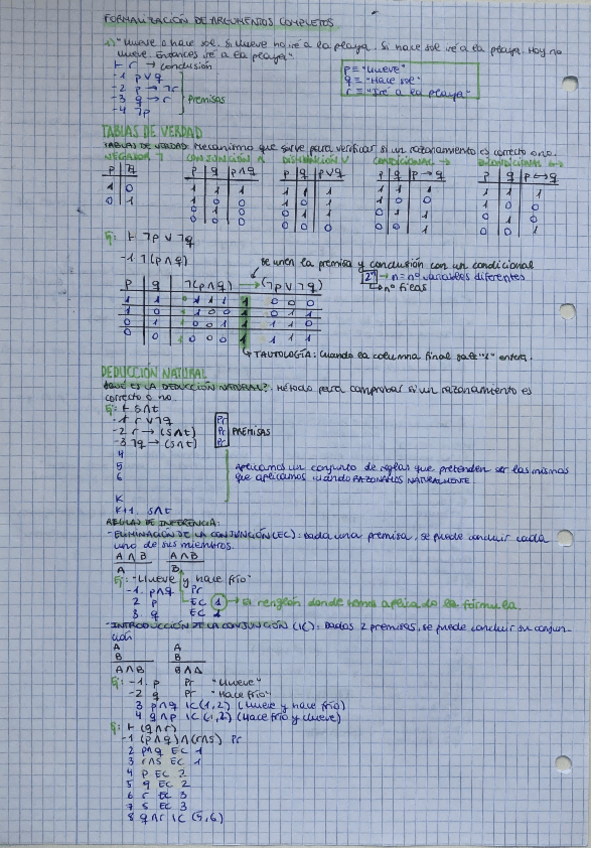 FORMALIZACIÓN DE ARGUMENTOS COMPLETOS
1) "Llueve o hace sol. Si llueve no iré a la playa. Si hace sol iré a la playa. Hoy no
llueve. Entonces iré a la playa"
⊢ r → conclusión
-1 p∨q
-2 p → ¬r
-3 q → r
-4 ¬p
Premisas
p = "Llueve"
q = "Hace sol"
r = "Iré a la playa"
TABLAS DE VERDAD
TABLAS DE VERDAD: Mecanismo que sirve para verificar si un razonamiento es correcto o no.
NEGADOR ¬ CONJUNCIÓN ∧ DISYUNCIÓN ∨ CONDICIONAL → BICONDICIONAL ↔
p q p∧q p q p∨q p q p→q p q p↔q
1 0 1 1 1 1 1 1 1 1 1 1 1 1
0 1 1 0 0 1 0 1 1 0 0 1 0 0
0 1 0 0 1 1 0 1 1 0 1 0
0 0 0 0 0 0 0 0 1 0 0 1
Ej: ⊢ ¬p ∨ ¬q
-1 ¬(p∧q)
se unen la premisa y conclusión con un condicional
2ⁿ → n = nº variables diferentes
→ nº filas
p q ¬(p∧q) → (¬p ∨ ¬q)
1 1 0 1 1 1 1 0 0 0
1 0 1 1 0 0 1 0 1 1
0 1 1 0 0 1 1 1 1 0
0 0 1 0 0 0 1 1 1 1
→ TAUTOLOGÍA: Cuando la columna final sale "1" entera.
DEDUCCIÓN NATURAL
¿QUÉ ES LA DEDUCCIÓN NATURAL?: Método para comprobar si un razonamiento es
correcto o no.
Ej: ⊢ s∧t
-1 r ∨ ¬q Pr
-2 r → (s∧t) Pr PREMISAS
-3 ¬q → (s∧t) Pr
4
5
6
Aplicamos un conjunto de reglas que pretenden ser las mismas
que aplicamos cuando RAZONAMOS NATURALMENTE
K
K+1. s∧t
REGLAS DE INFERENCIA:
-ELIMINACIÓN DE LA CONJUNCIÓN (EC): Dada una premisa, se puede concluir cada
uno de sus miembros.
A∧B A∧B
A B
Ej: -"Llueve y hace frío"
-1. p∧q Pr
2 p EC 1 → El renglón donde hemos aplicado la fórmula.
3. q EC 1
-INTRODUCCIÓN DE LA CONJUNCIÓN (IC): Dadas 2 premisas, se puede concluir su conjun-
ción
A A
B B
A∧B B∧A
Ej: -1. p Pr "Llueve"
-2 q Pr "Hace frío"
3 p∧q IC (1,2) (Llueve y hace frío)
4 q∧p IC (1,2) (Hace frío y llueve)
Ej: ⊢ (q∧r)
-1 (p∧q)∧(r∧s) Pr
2 p∧q EC 1
3 r∧s EC 1
4 p EC 2
5 q EC 2
6 r EC 3
7 s EC 3
8 q∧r IC (5,6)